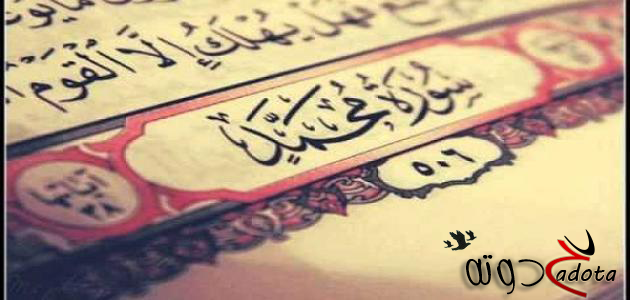 فَهَلْ يُهْلَكُ إِلَّا الْقَوْمُ
سُورَةُ مُحَمَّدٍ
آياتها
٣٨
٥٠٦
حدوته
7adota